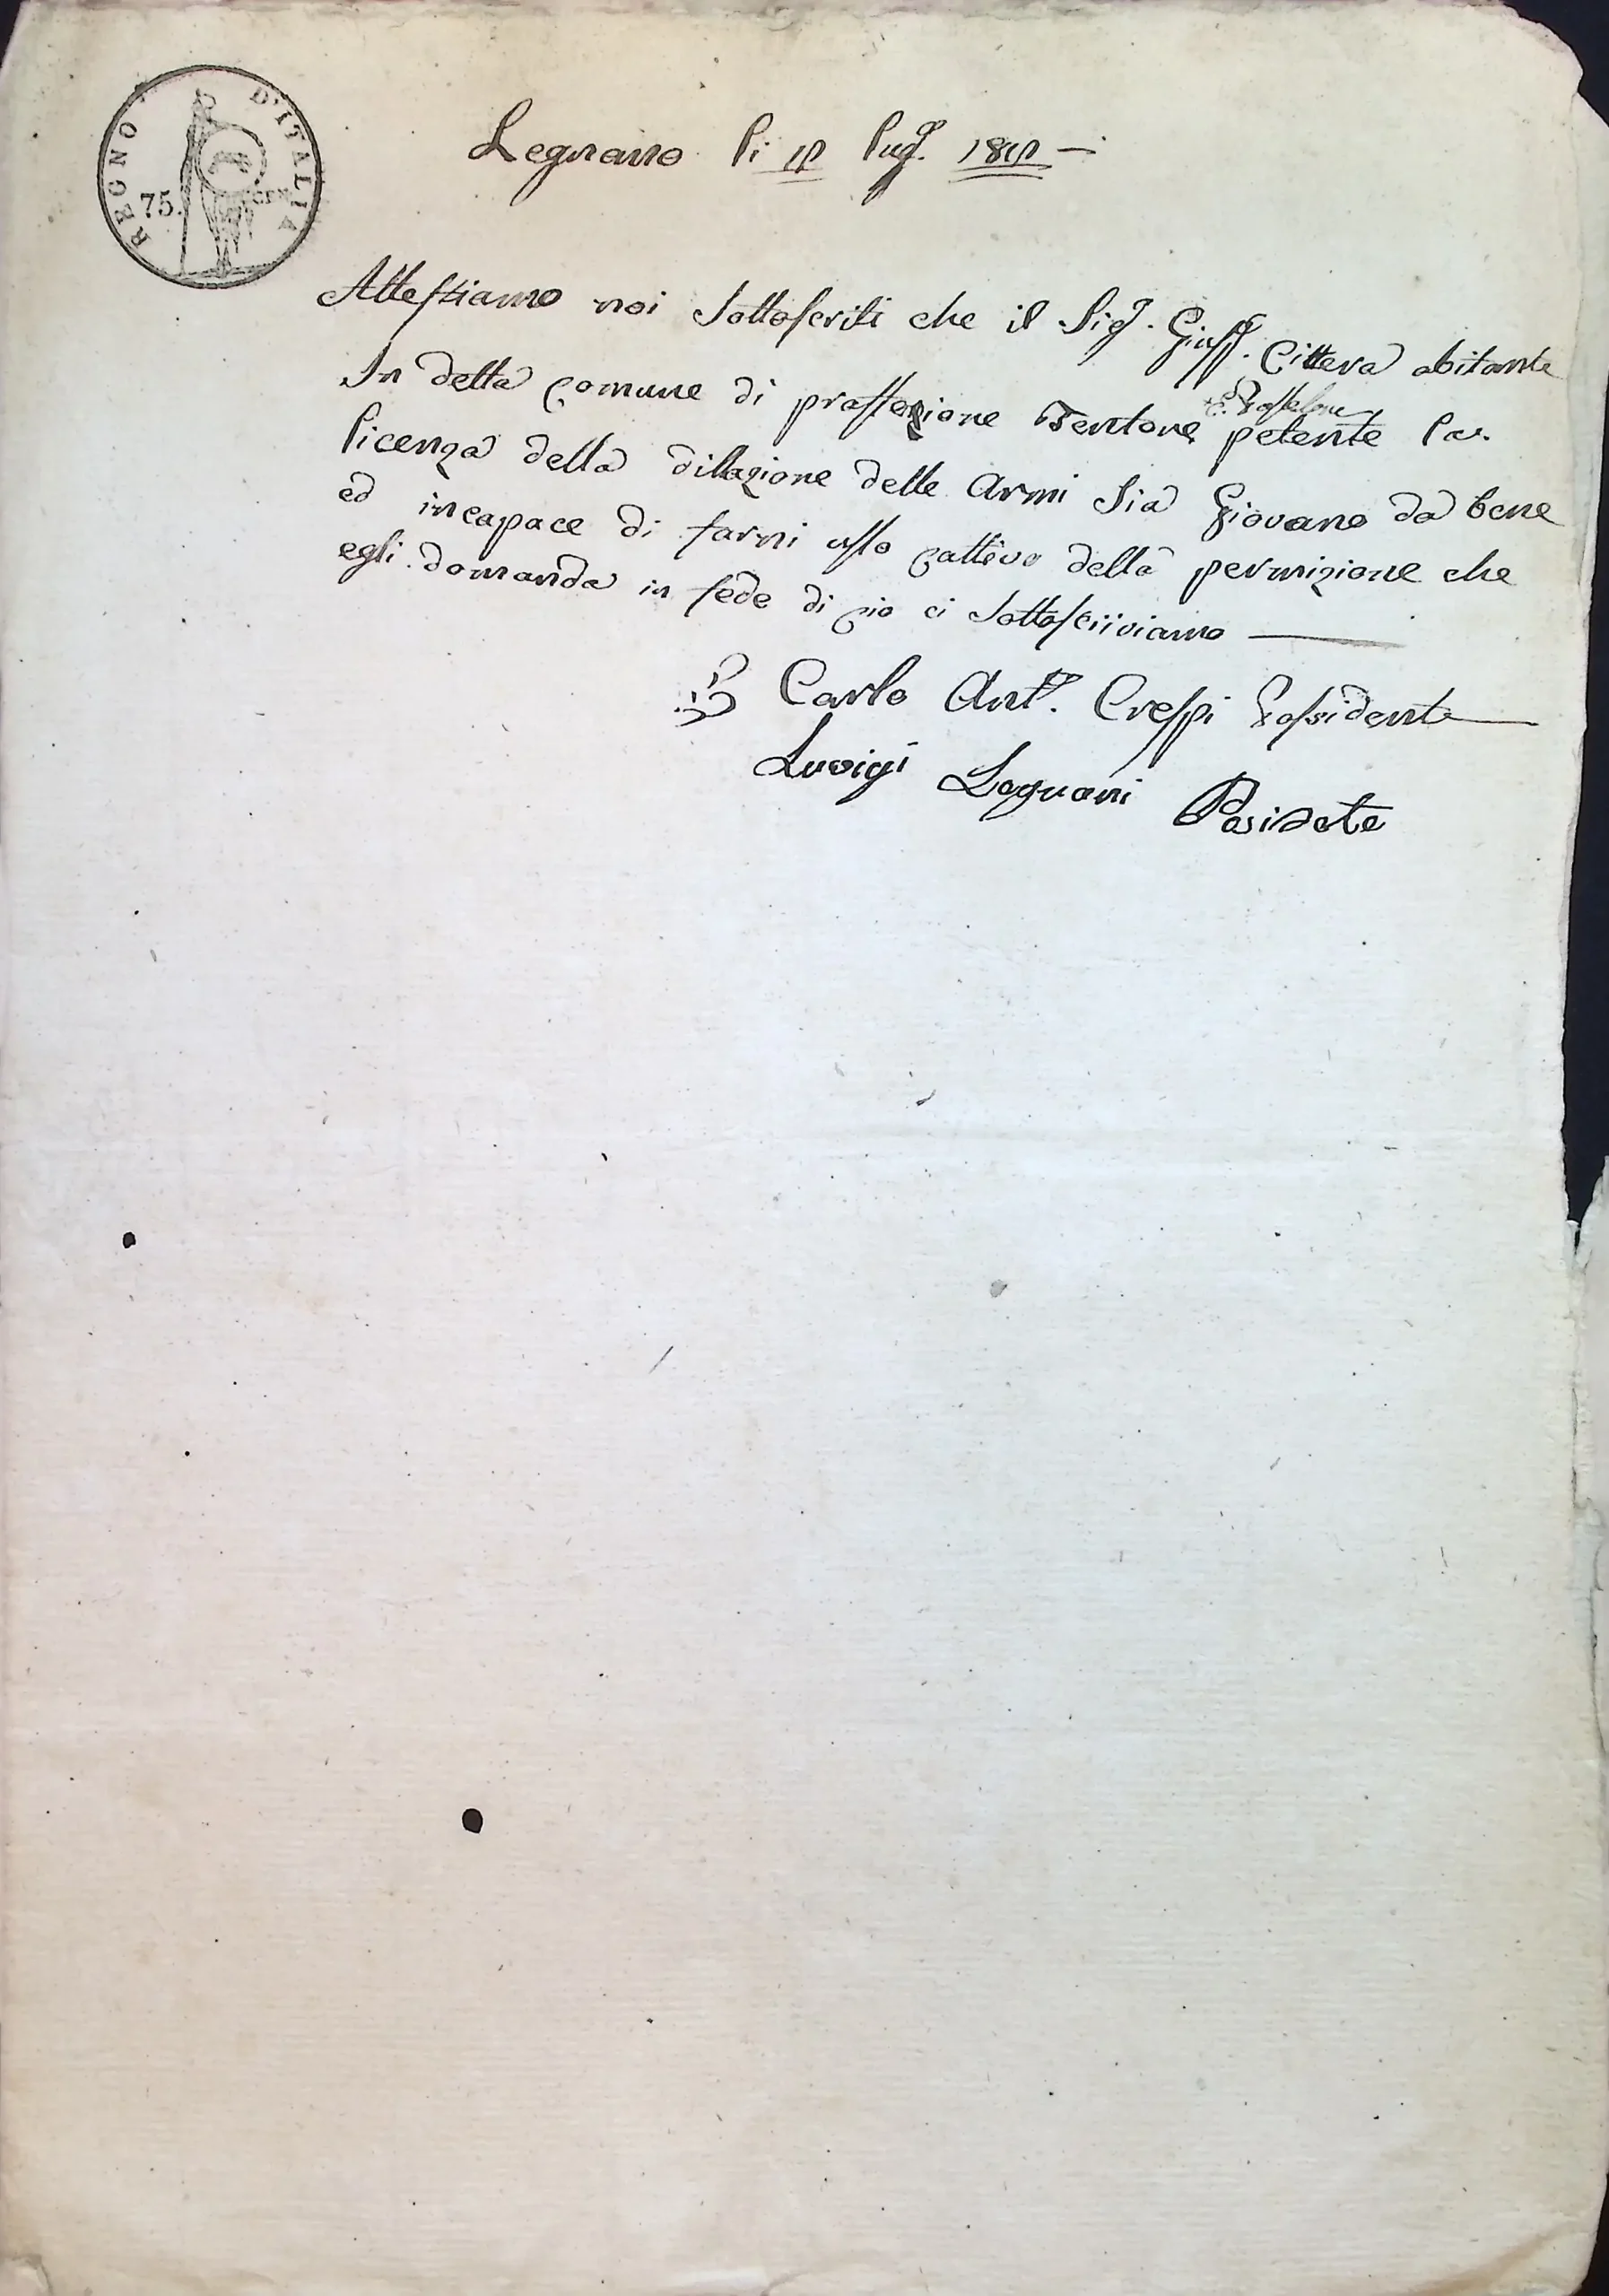 REGNO D'ITALIA
75. CEN
Legnano li lug. 18
Attestiamo noi sottoscriti che il Sig. Gius. Cittera abitante
In detta comune di professione Tentore petente la
licenza della dilazione delle Armi sia Giovane da bene
ed incapace di farni usso cattivo della permizione che
egli domanda in fede di cio ci sottoscriviamo
Carlo Ant. Crespi Possidente
Luoigi Legnani Posidete